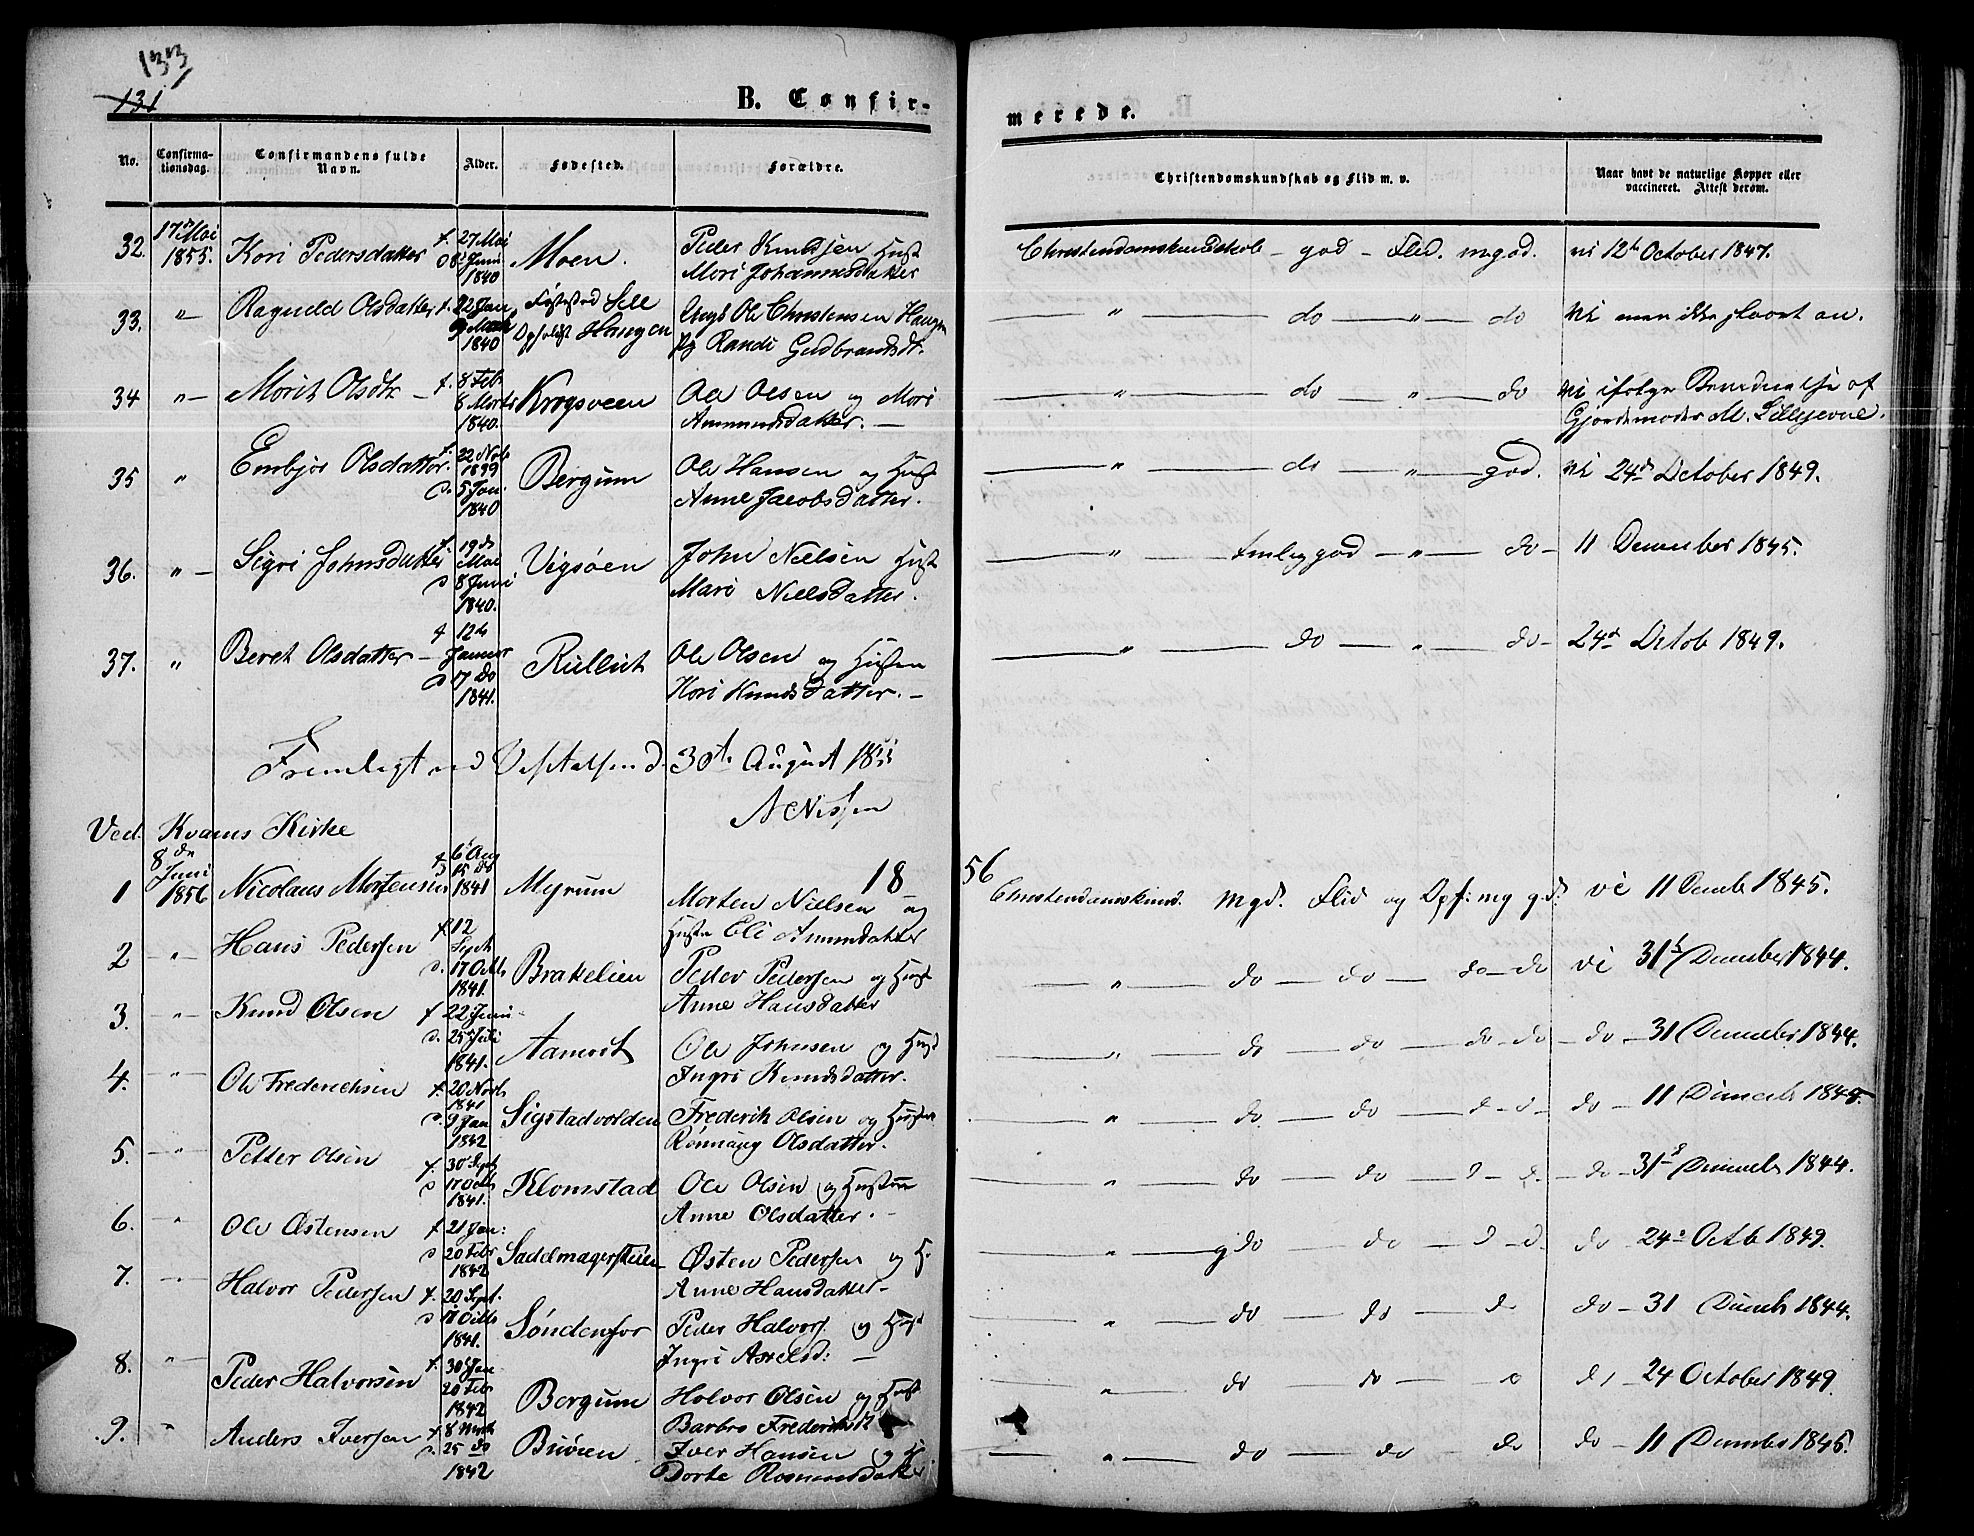 133
131
B. Confir-
merede.
No.
Confirma-
tionsdag.
Confirmandens fulde
Navn.
Alder.
Fødested.
Forældre.
Christendomskundskab og Flid m. v.
Naar havt de naturlige Kopper eller
vaccineret. Attest derom.
32. 17de Mai 1855. Kari Pedersdatter f. 27 Mai D 8 Juni 1840 Moen. Peder Knudsen Hust
Mari Johannesdatter
Christendomskundskab - god - Flid. mgod. vi 12te October 1847.
33. " Ragnild Olsdatter f. 22 Jan 1840 Fødested Sell
Opholdst Haugen Ungk Ole Christensen Haugen
Pg Randi Gudbrandsdt.
" do " do vi men ikke slaaet an.
34 " Marit Olsdtr f. 8 Febr 8 Marts 1840. Krogsveen Ole Olsen og Mari
Ammundsdatter.
" do " do vi ifølge Benævnelse af
Gjordemoder M. Lillejevne.
35 " Embjør Olsdatter f. 22 Novb 1839 D. 5 Jan. 1840 Bergum Ole Hansen og Hust
Anne Jacobsdatter.
" do " god. vi 24de October 1849.
36. " Sigri Johnsdatter f 19de Mai D 8 Juni 1840. Vigsøen John Nielsen Hust
Mari Nielsdatter.
" temlig god " do 11 December 1845.
37. " Beret Olsdatter f 12te Januar D 17 Do 1841. Rullut Ole Olsen og Hustru
Kari Knudsdatter.
" do " do 24de Octob 1849.
Fremlagt ved 30te August 1855
N Nissen
Ved Kvams Kirke
18 56
1 8de Juni 1856 Nicolaus Mortensen f 6 Aug D 15 do 1841 Myrum Morten Nielsen og
Hustr Eli Amundatter
Christendomskund. mgd. Flid og Opf: meg gd: vi 11 Decemb 1845.
2 " Hans Pedersen f 12 Sept D. 17 Octb 1841. Brakelien Peder Pedersen og Hust
Anne Hansdatter
" do do do do vi 31te December 1844.
3. " Knud Olsen f 22 Juni D. 25 Juli 1841. Aamodt Ole Johnsen og Hust
Ingri Knudsdatter.
" do do do do do 31 December 1844.
4. " Ole Frederichsen f. 20 Novb 1841 D. 9 Jan 1842 Sigstadvolden Frederik Olsen og Hustr
Rønnaug Olsdatter.
" do do d d do 11 Decemb 1845.
5. " Petter Olsen f. 30 Sept D 17 Octb 1841. Klomstad Ole Olsen og Hustru
Anne Olsdatter.
" do do d d do 31te December 1844.
6. " Ole Østensen f 21 Jan: D 20 Febr 1842 Sadelmagerstuen Østen Pedersen og H.
Anne Hansdatter
" gdo do d d do 24de Octb 1849.
7. " Halvor Pedersen f. 20 Sept. D 17 Octb 1841. Søndenfor Peder Halvors. og Hust
Ingri Axelsd:
" do do do do 31 Decemb 1844.
8. " Peder Halvorsen f. 30 Jan 20 Febr 1842 Bergum Halvor Olsen og Hust
Barbro Frederiksdt
" do do do 24 October 1849.
9. " Anders Iversen f 8 Marts D. 25 do 1842 Buøen Iver Hansen og H
Dorte Rasmusdatter
" do do do do 11 December 1845.